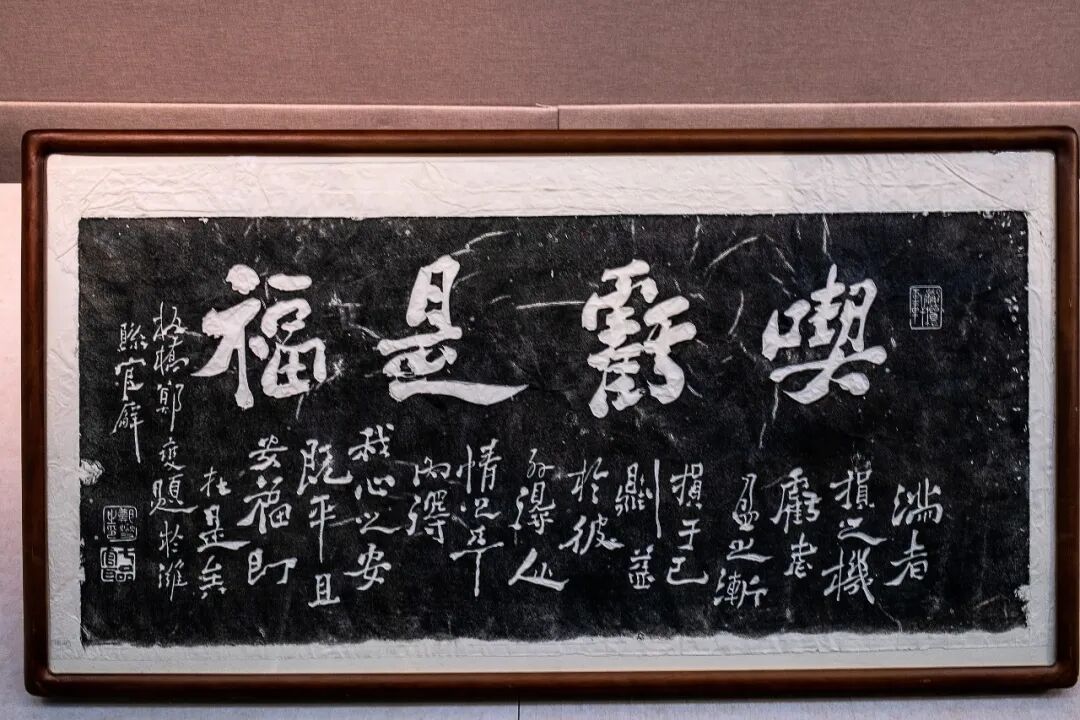 喫虧是福
滿者
損之機
虧者
盈之漸
損于己
則益
於彼
外得人
情之平
內得
我心之安
既平且
安福即
在是矣
板橋鄭燮題於濰
縣官廨
鄭燮之印